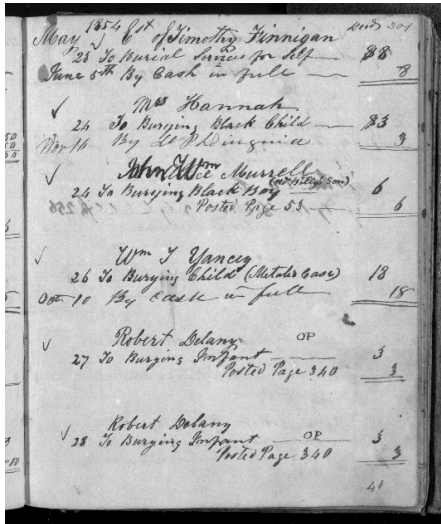 May 1854 Est of Timothy Finnigan
23 To Burial Services for Self $8
June 5th By Cash in full 8
Mrs Hannah
24 To Burying Black Child $3
Nov 14 By 3
John Wm Murrell
(old Billy's Son)
24 To Burying Black Boy 6
Posted Page 53 6
Wm T Yancey
26 To Burying Child (Metalic Case) 18
Oct 10 By Cash in full 18
Robert Delany OP
27 To Burying Infant 3
Posted Page 340 3
Robert Delany
28 To Burying Infant OP 3
Posted Page 340 3
41